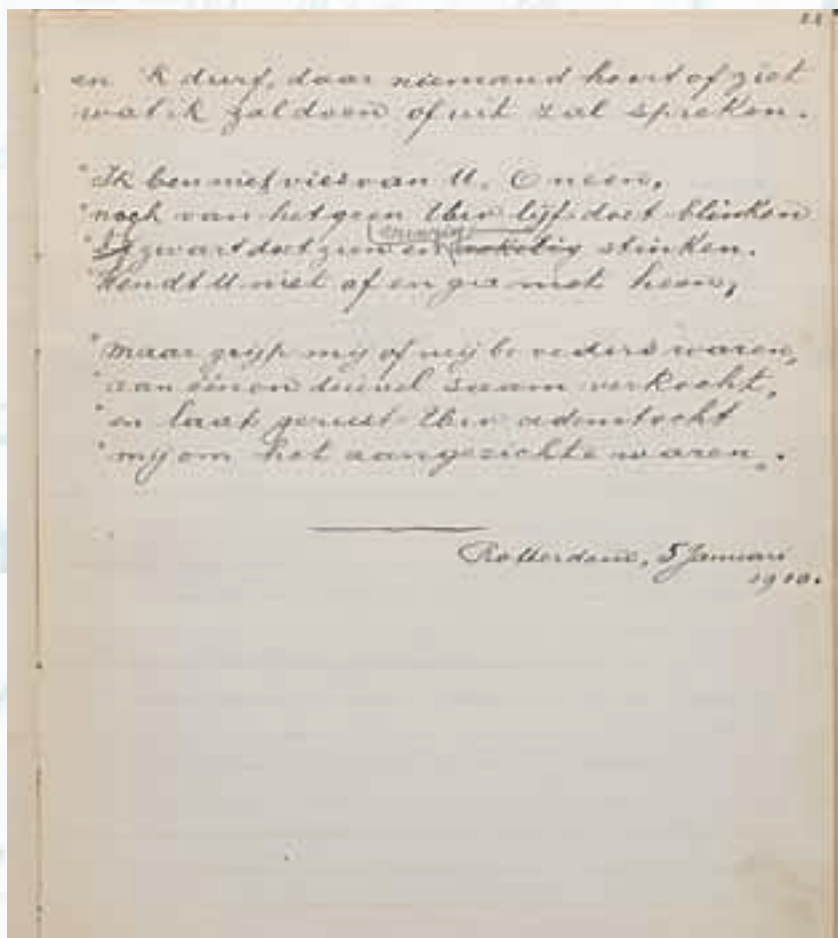 22
en 'k durf, daar niemand hoort of ziet
wat ik zal doen of uit zal spreken.
"Ik ben niet vies van U. O neen,
"noch van hetgeen Uw lijf doet blinken
zwart doet zien en stinken.
"Wendt U niet af en ga niet heen,
"maar grijp mij of wij broeders waren,
"aan éénen duivel saam verkocht,
"en laat gerust Uw ademtocht
"mij om het aangezichte waren.
Rotterdam, 5 Januari
1910.